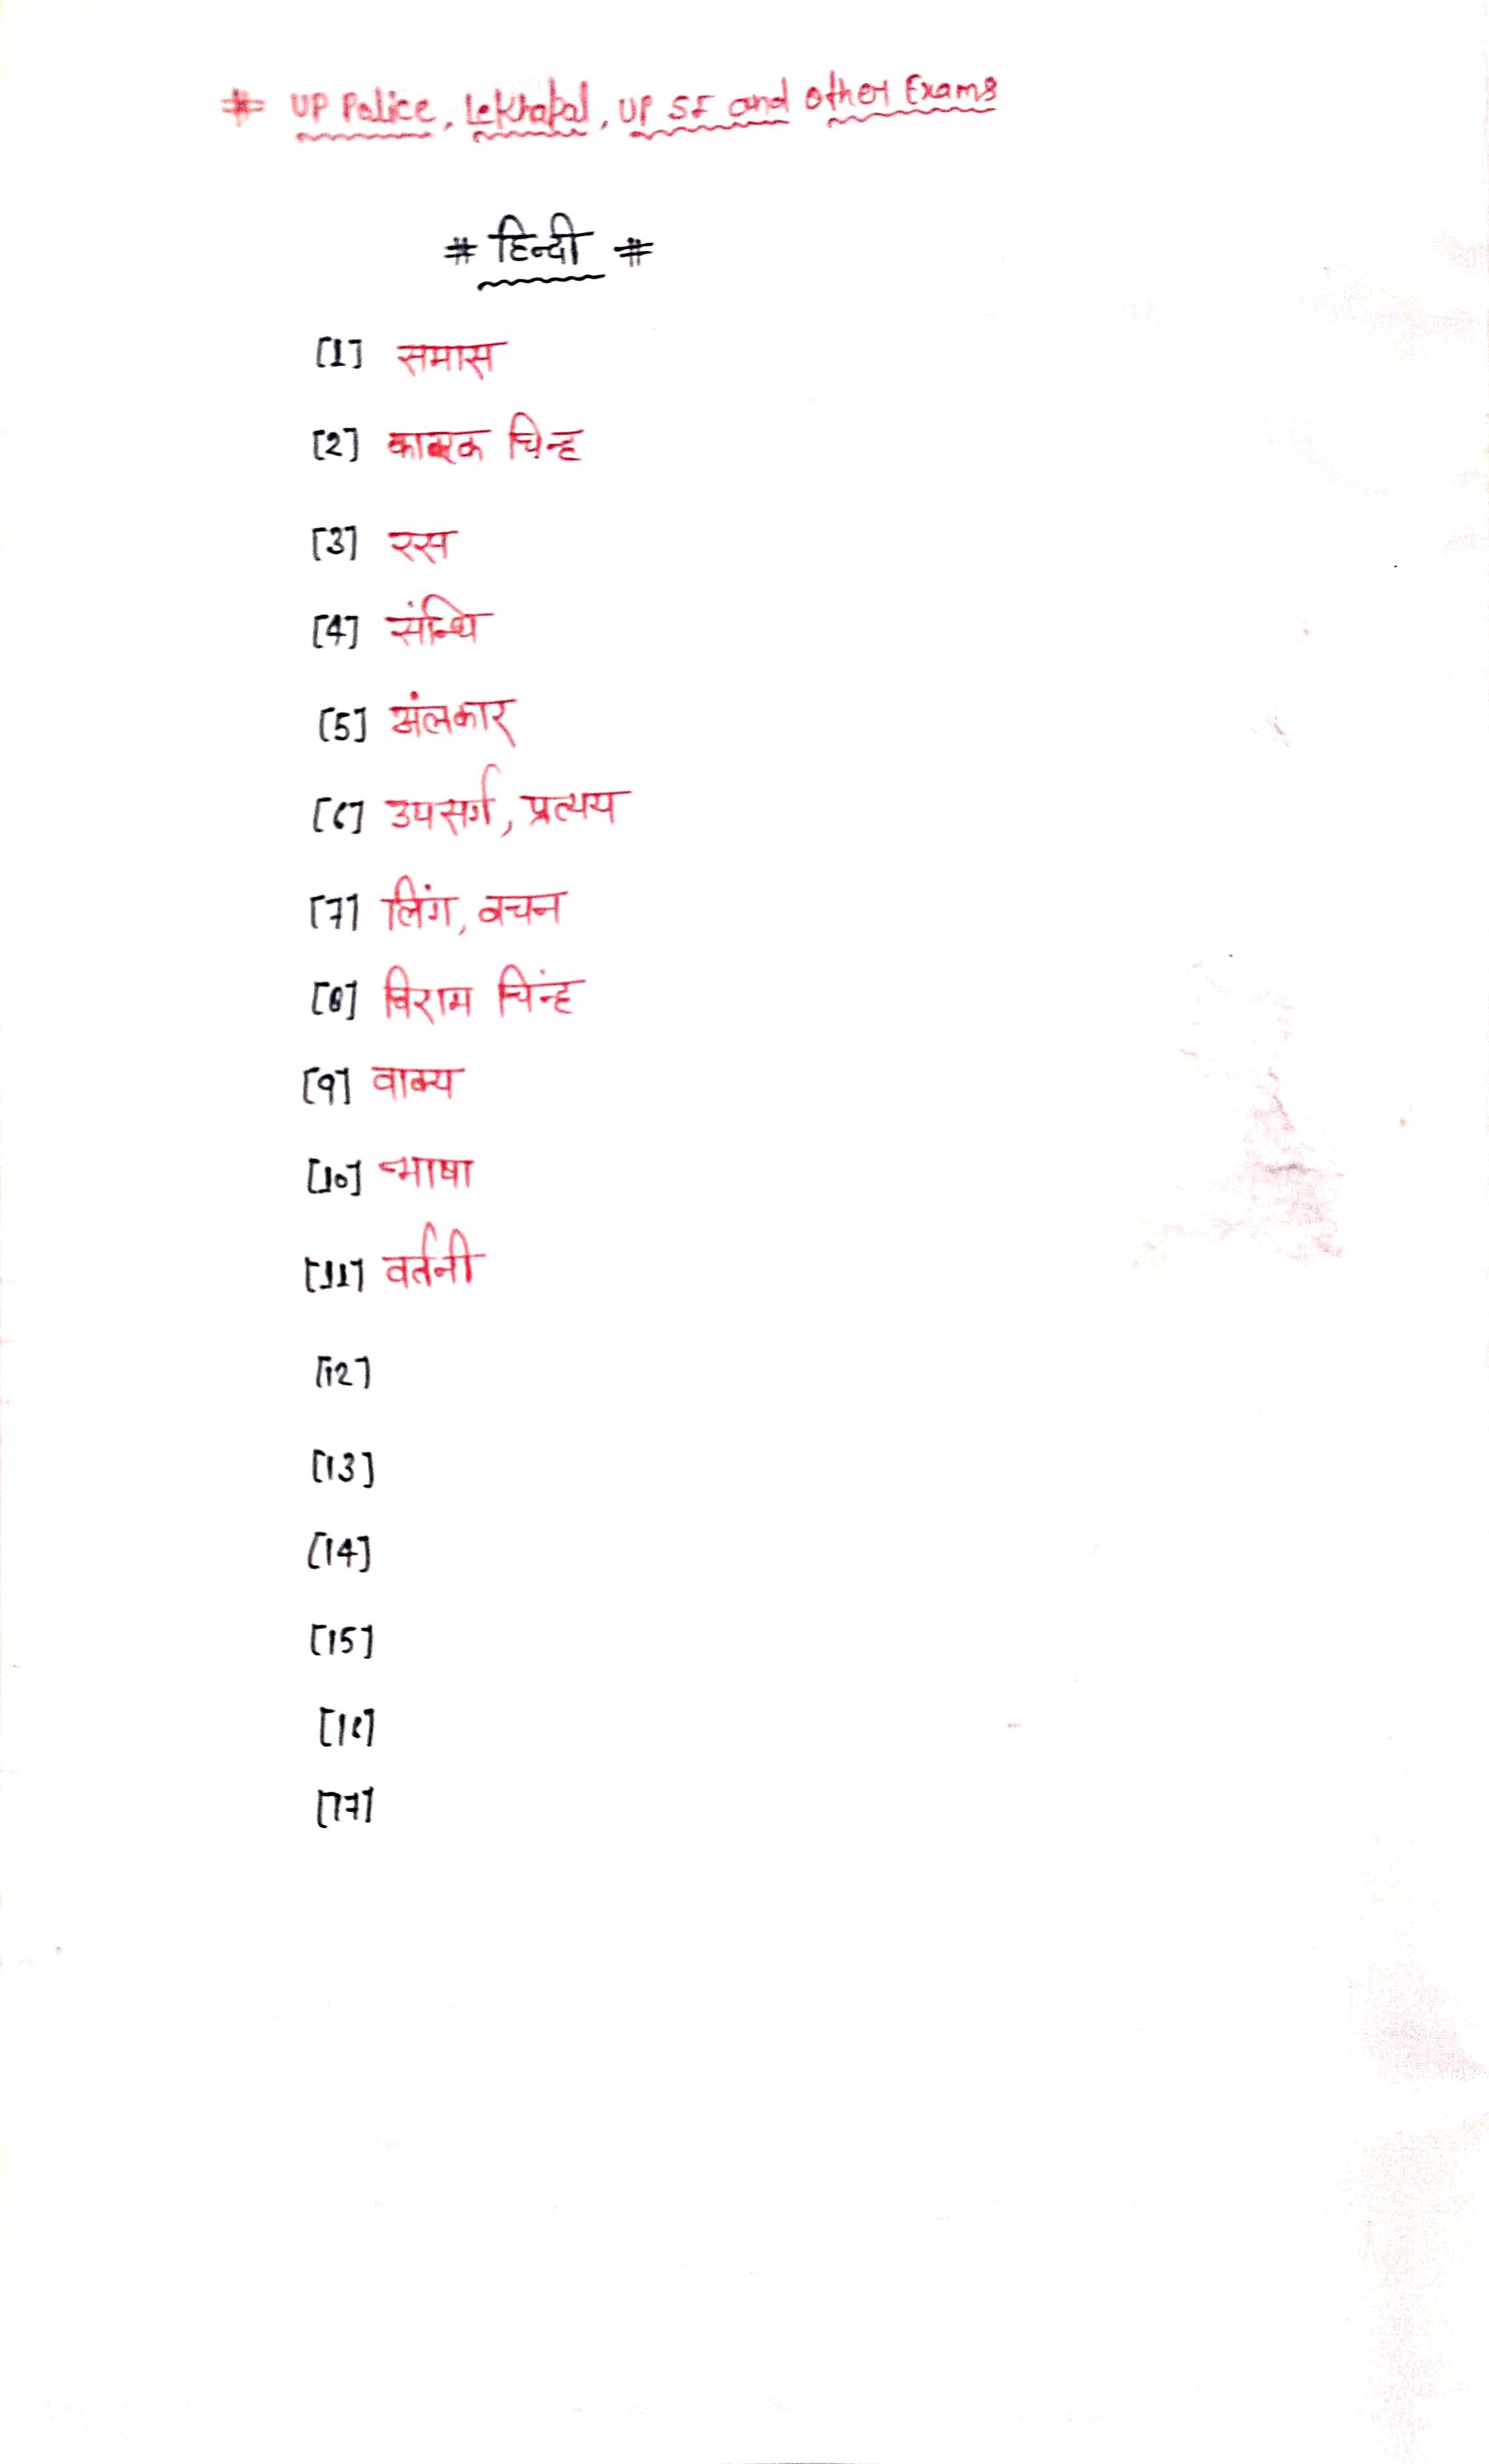 # UP Police, Lekhapal, UP SI and other Exams
# हिन्दी #
[1] समास
[2] कारक चिन्ह
[3] रस
[4] संन्धि
[5] अंलकार
[6] उपसर्ग, प्रत्यय
[7] लिंग, वचन
[8] विराम चिंन्ह
[9] वाक्य
[10] भाषा
[11] वर्तनी
[12]
[13]
[14]
[15]
[16]
[17]